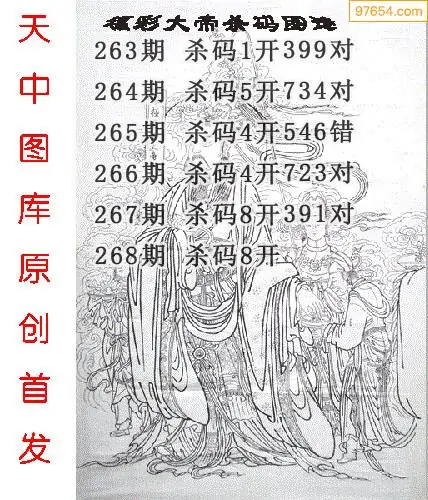 97654.com
福彩大帝杀码图迷
263期 杀码1开399对
264期 杀码5开734对
265期 杀码4开546错
266期 杀码4开723对
267期 杀码8开391对
268期 杀码8开
天中图库原创首发